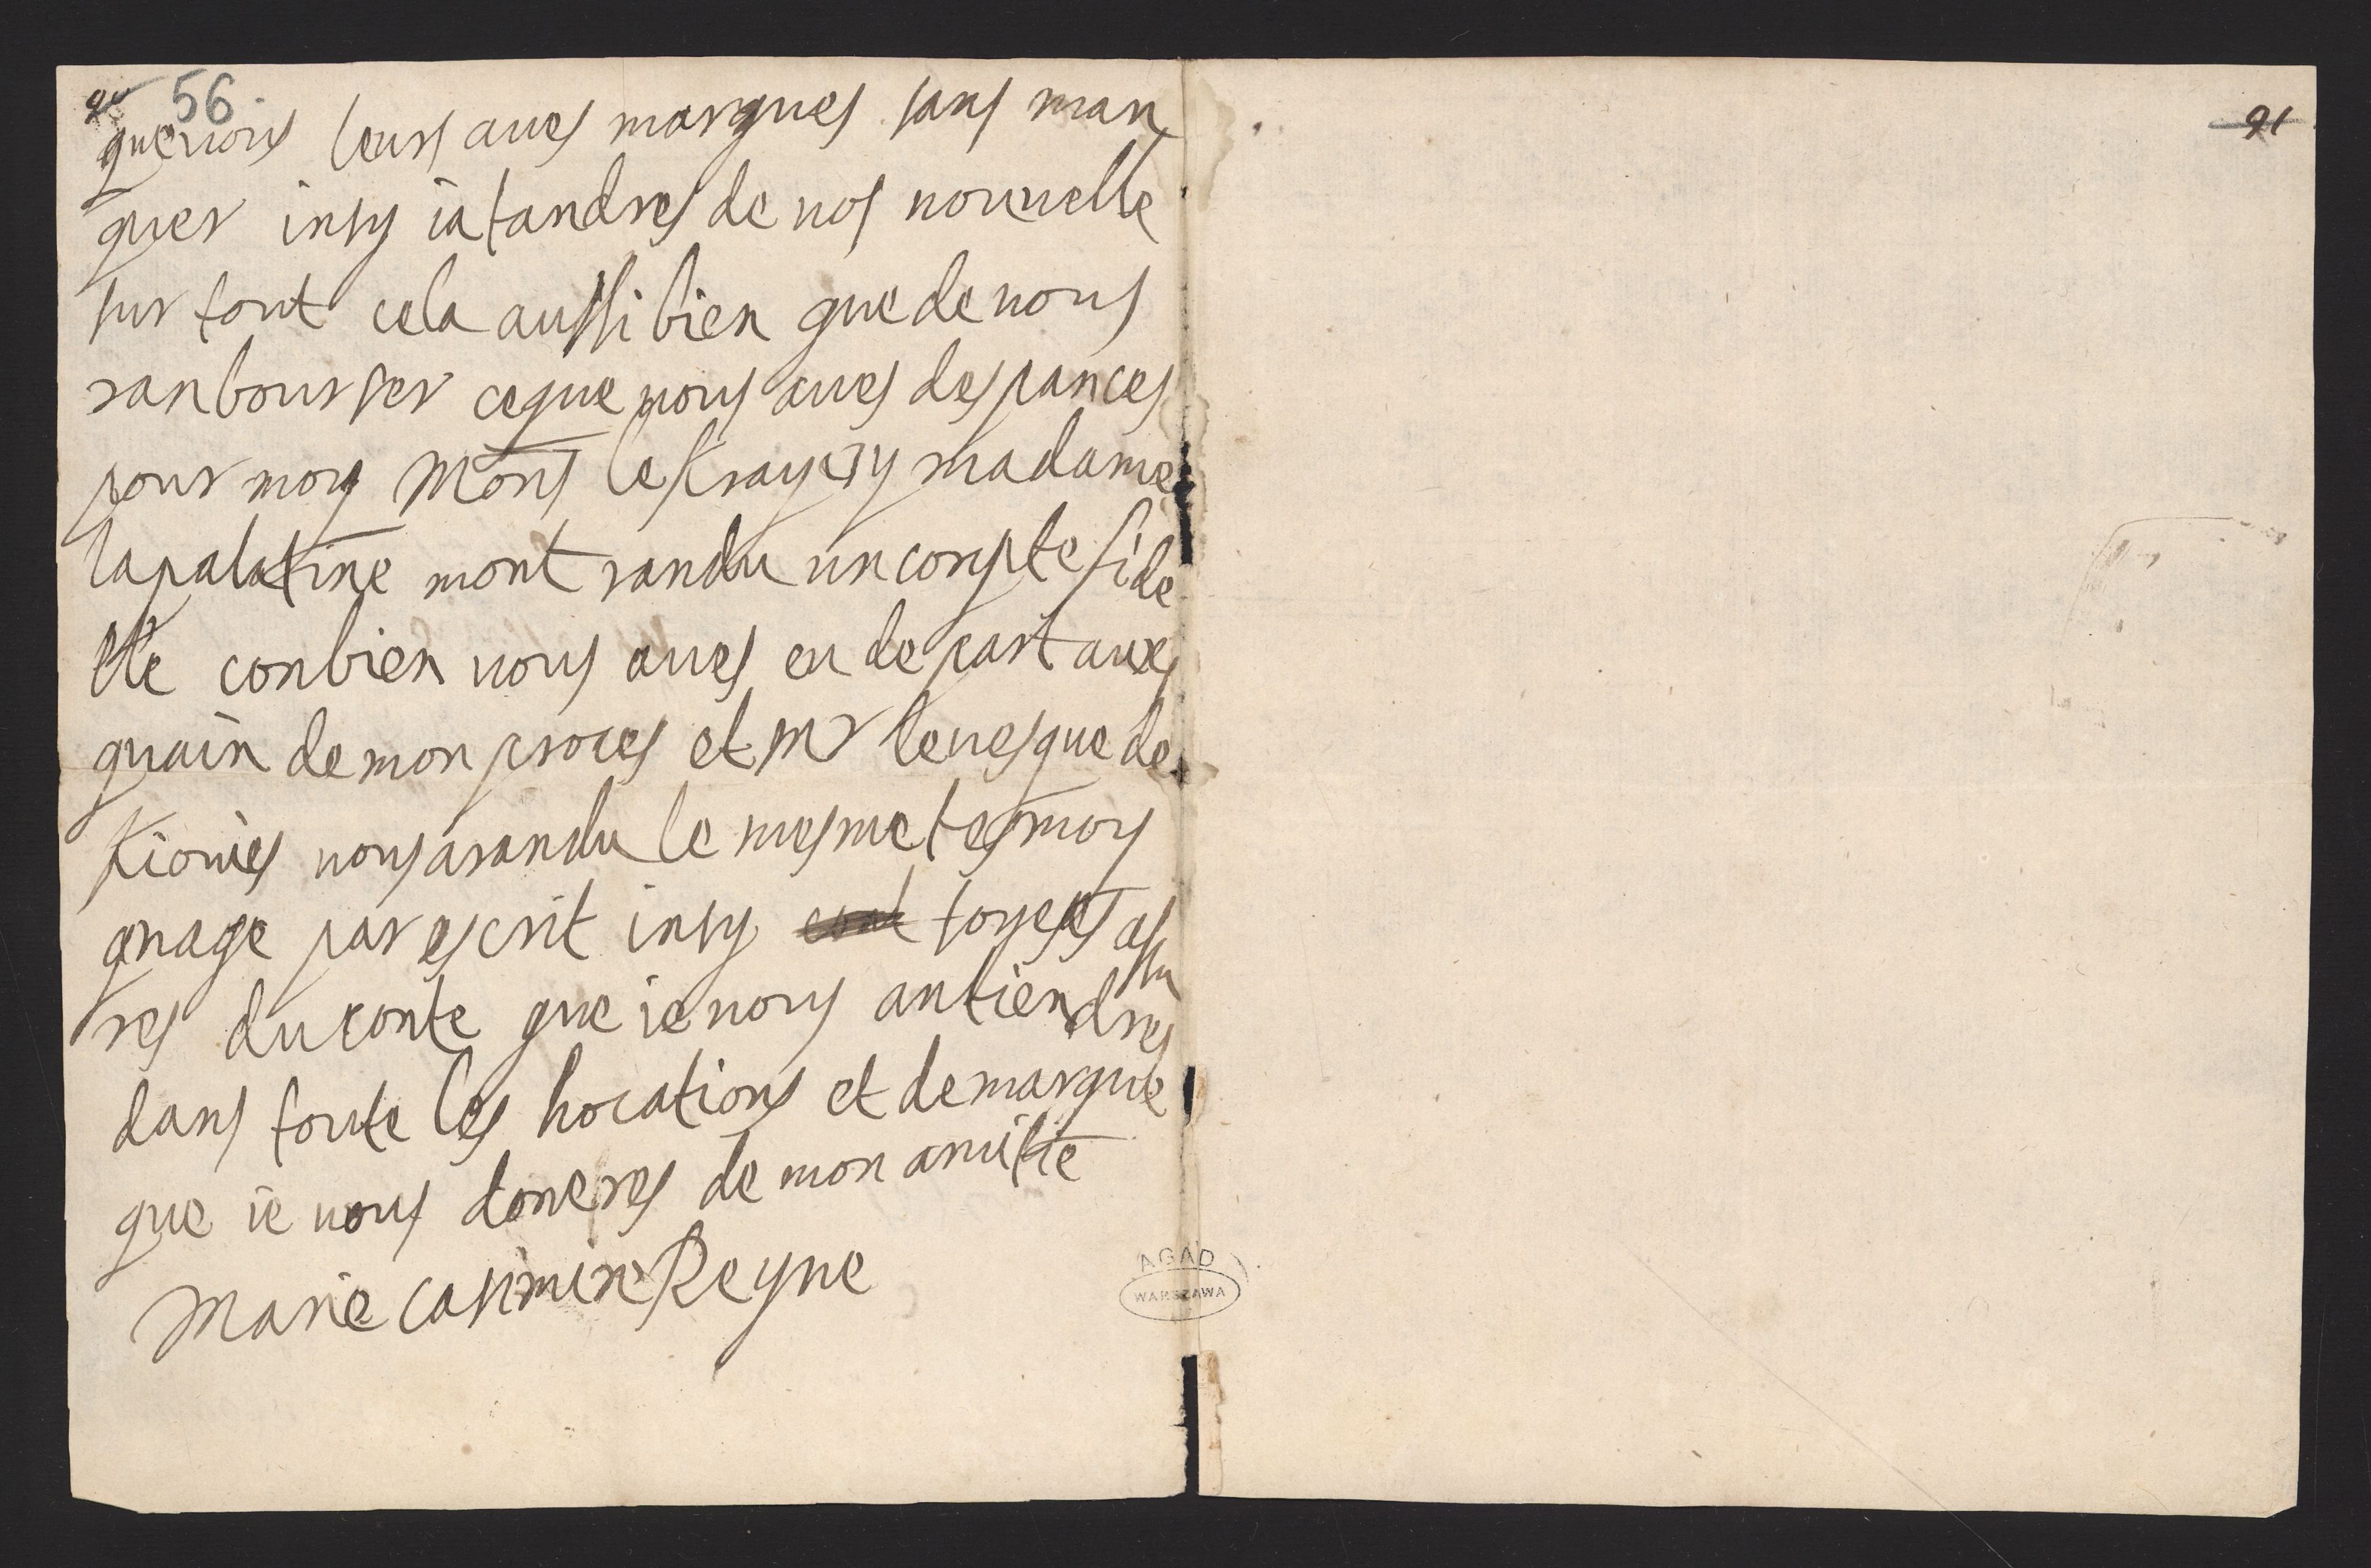 56.
que vous leurs aues marques sans man
quer insy iatandres de vos nouuelle
sur tout cela aussi bien que de vous
ranbourser ceque vous aues despances
pour moy Mons le Krayczy madame
la palatine mont randu un conpte fide
lle conbien vous aues eu de part aux
guain de mon proces et Mr leuesque de
Kiouies nous arandu le mesme tesmoy
gnage par escrit insy soyes assu
res du conte que ie vous antiendres
dans toute les hocations et de marque
que ie vous doneres de mon amitie
Marie Casimire Reyne
91
AGAD
WARSZAWA